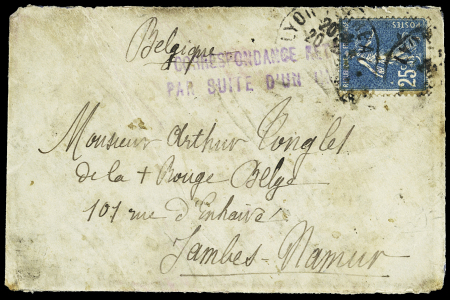 Belgique
LYON
CORRESPONDANCE
PAR SUITE D'UN
POSTES
25c
Monsieur Arthur Conglet
de la + Rouge Belge
101 rue d'Enhaive
Jambes-Namur